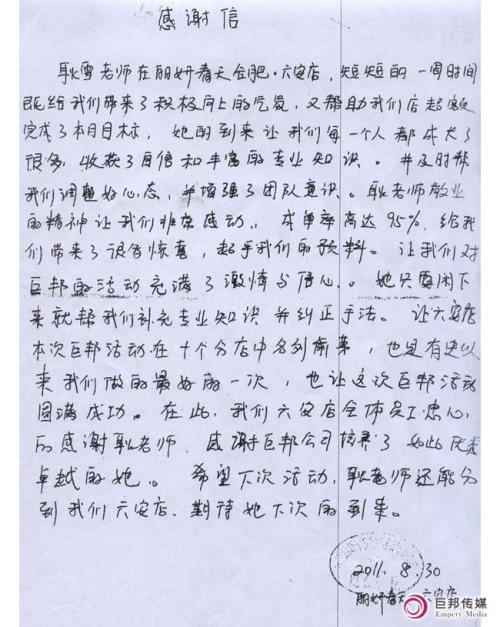 感谢信
耿雪老师在丽妍春天合肥·六安店，短短的一周时间
既给我们带来了积极向上的气氛，又帮助我们店超额
完成了本月目标，她的到来让我们每一个人都成长了
很多，收获了自信和丰富的专业知识。并及时帮
我们调整好心态，并增强了团队意识。耿老师敬业
的精神让我们非常感动。成单率高达95%，给我
们带来了很多惊喜，超乎我们的预料。让我们对
巨邦的活动充满了激情与信心。她只要闲下
来就帮我们补充专业知识并纠正手法。让六安店
本次巨邦活动在十个分店中名列前茅，也是有史以
来我们做的最好的一次，也让这次巨邦活动
圆满成功。在此，我们六安店全体员工忠心
的感谢耿老师，感谢巨邦公司培养了如此优秀
卓越的她。希望下次活动，耿老师还能分
到我们六安店，期待她下次的到来。
2011.8.30
丽妍春天 六安店
巨邦传媒
Empery Media